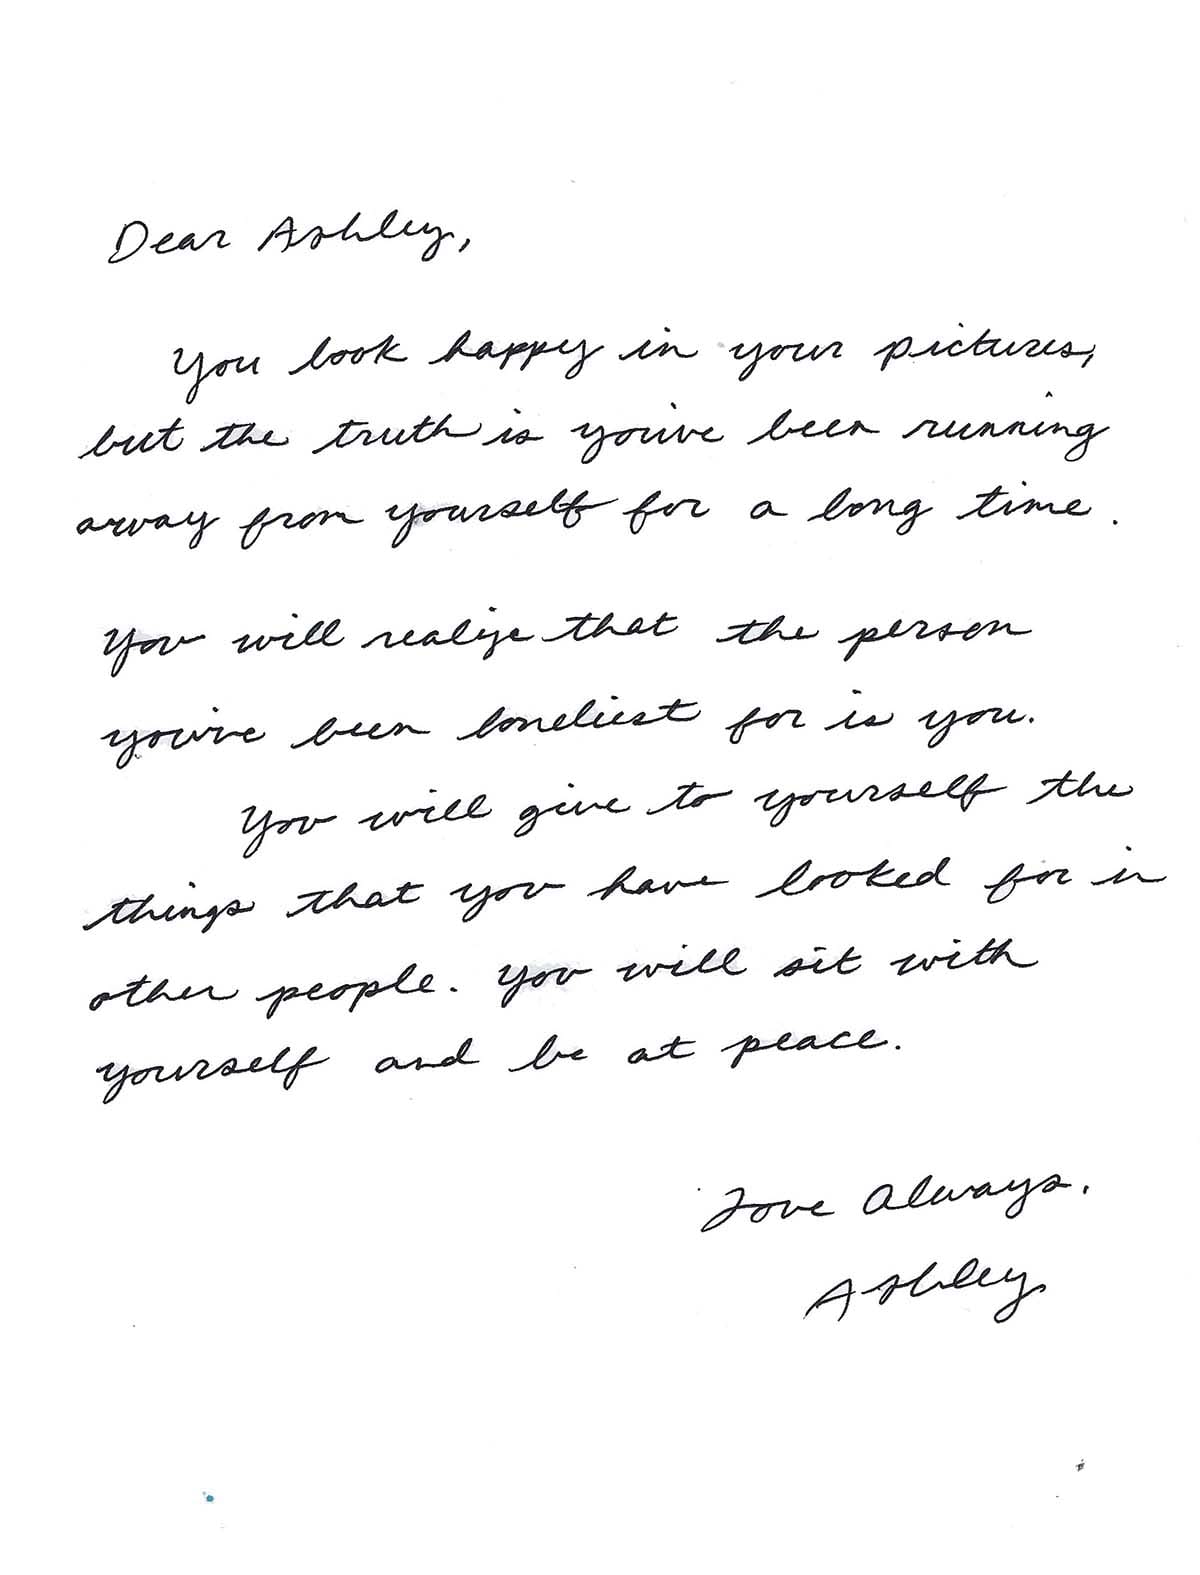 Dear Ashley,
You look happy in your pictures,
but the truth is you've been running
away from yourself for a long time.
You will realize that the person
you've been loneliest for is you.
You will give to yourself the
things that you have looked for in
other people. You will sit with
yourself and be at peace.
Love Always,
Ashley